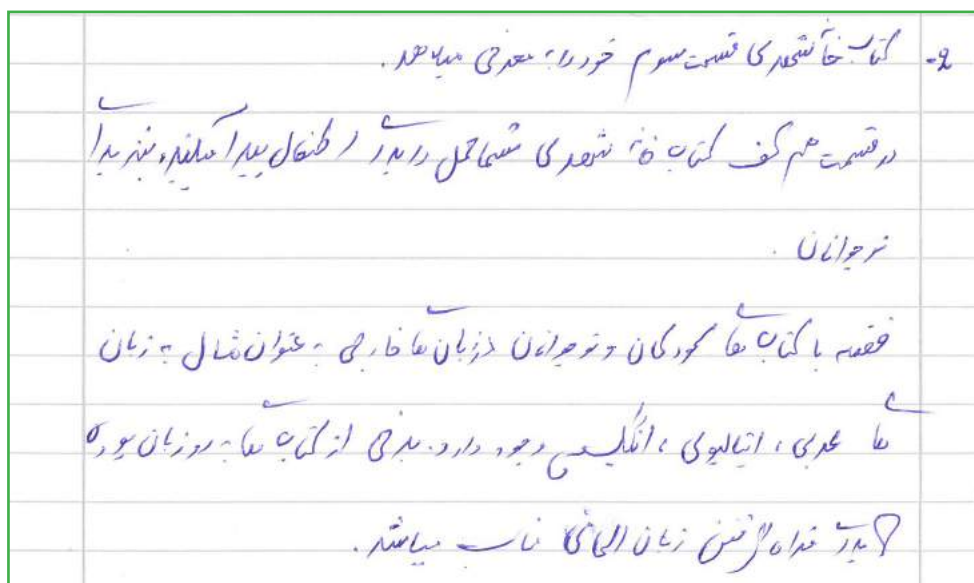 ۲- کتاب خانهٔ شهری قسمت سوم خود را به معرفی میدهد.
در قسمت هم کف کتاب خانه شهری شما محل را برای اطفال پیدا میکنید، نیز برای
نوجوانان.
قفسه با کتاب ها کودکان و نوجوانان در زبان ها خارجی به عنوان مثال به زبان
ها عربی، ایتالیوی، انگلیسی وجود دارد. برخی از کتاب ها به روز زبان بوده
برای فراه گرفتن زبان المانی مناسب میباشد.